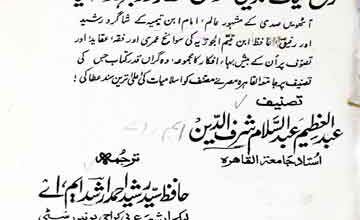 آٹھویں صدی کے مشہور عالم، امام ابن تیمیہ کے شاگرد رشید
اور رفیق حافظ ابن قیم الجوزیہ کی سوانح عمری اور فقہ، عقاید اور
تصوف پر اُن کے بیش بہا افکار کا مجموعہ، وہ گراں قدر کتاب جس کی
تصنیف پر جامعہ القاہرہ مصر نے مصنف کو اسلامیات کی اعلیٰ ترین سند عطا کی
تصنیف
عبدالعظیم عبدالسلام شرف الدین
استاد جامعۃ القاہرہ
ترجمہ
حافظ سید رشید احمد ارشد ایم، اے